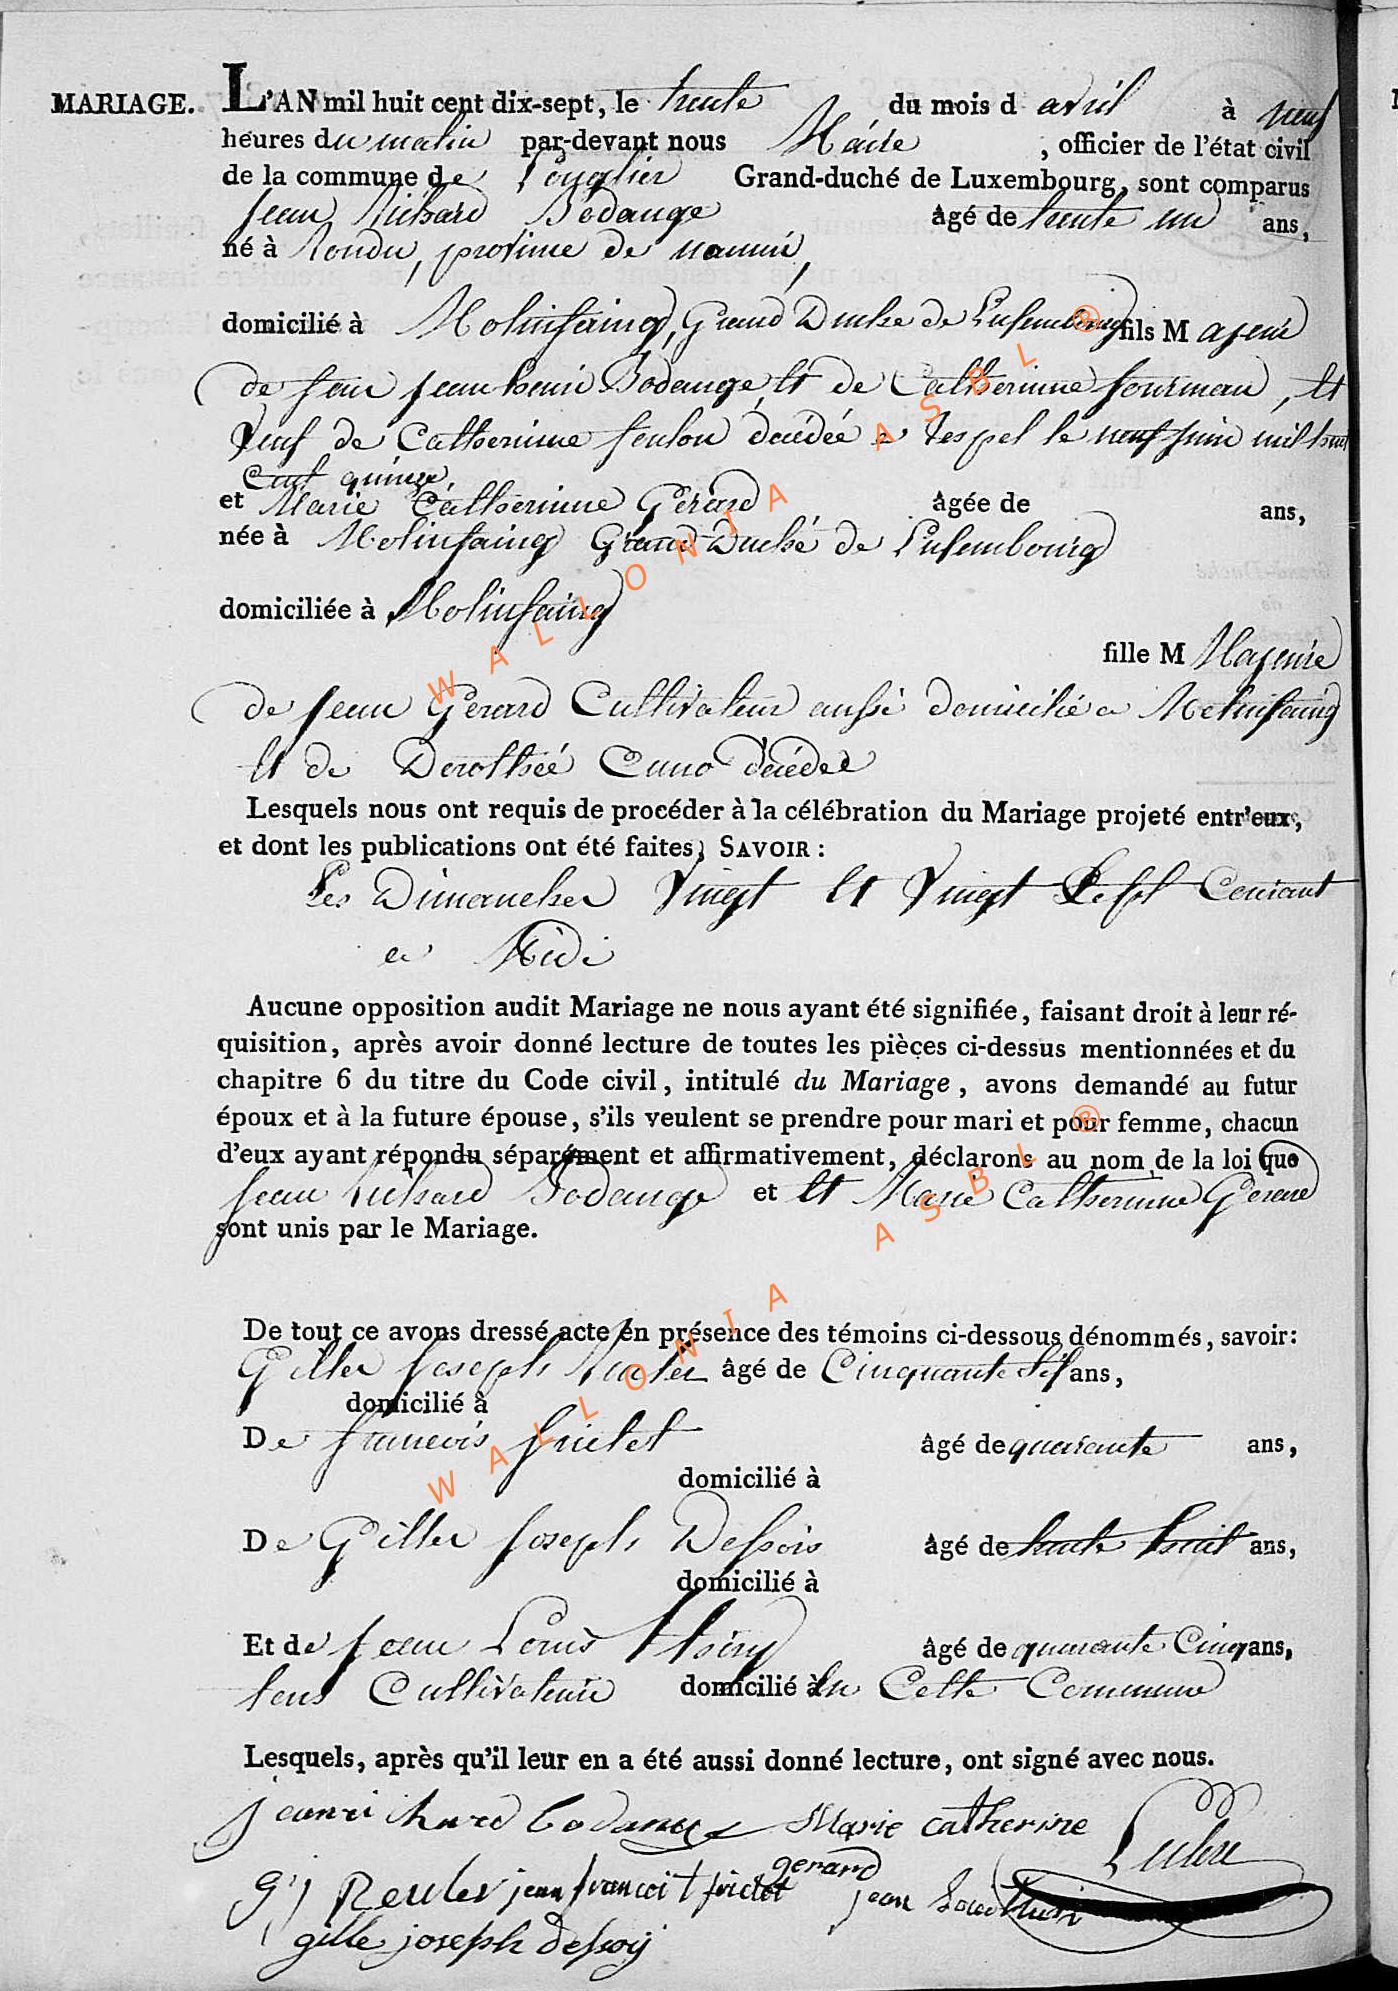 MARIAGE. L'AN mil huit cent dix-sept, le trente du mois d avril à neuf
heures du matin par-devant nous Maire , officier de l'état civil
de la commune de Louglier Grand-duché de Luxembourg, sont comparus
Jean Richard Bodange âgé de trente un ans,
né à Rondu, province de namur,
domicilié à Molinfaing, Grand Duché de Luxembourg fils M ajeur
de feu jean henri Bodange et de Catherinne fourman, et
veuf de Catherinne foulon décédée a Tespel le neuf juin mil huit
cent quinze
et Marie Catherinne Gérard âgée de ans,
née à Molinfaing Grand-Duché de Luxembourg
domiciliée à Molinfaing
fille M Majeure
de jean Gerard Cultivateur aussi domicilié a Molinfaing
et de Dorothée Cuno décédée
Lesquels nous ont requis de procéder à la célébration du Mariage projeté entr'eux,
et dont les publications ont été faites, SAVOIR :
Les Dimanches vingt et vingt sept Courant
a Midi
Aucune opposition audit Mariage ne nous ayant été signifiée, faisant droit à leur ré-
quisition, après avoir donné lecture de toutes les pièces ci-dessus mentionnées et du
chapitre 6 du titre du Code civil, intitulé du Mariage, avons demandé au futur
époux et à la future épouse, s'ils veulent se prendre pour mari et pour femme, chacun
d'eux ayant répondu séparément et affirmativement, déclarons au nom de la loi que
jean Richard Bodange et et Marie Catherinne Gerard
sont unis par le Mariage.
De tout ce avons dressé acte en présence des témoins ci-dessous dénommés, savoir:
Gille joseph Reuler âgé de Cinquante sif ans,
domicilié à
De francois frictet âgé de quarante ans,
domicilié à
De Gille joseph Dessois âgé de trente huit ans,
domicilié à
Et de jean Louis Thiry âgé de quarante Cinq ans,
tous Cultivateur domicilié à en Cette Commune
Lesquels, après qu'il leur en a été aussi donné lecture, ont signé avec nous.
jeanrichard bodange Marie catherine
gerard
g j Reuler jean francoi frictet jean Louis thiri
gille joseph dessoy
WALLONIA ASBL ®
WALLONIA ASBL ®